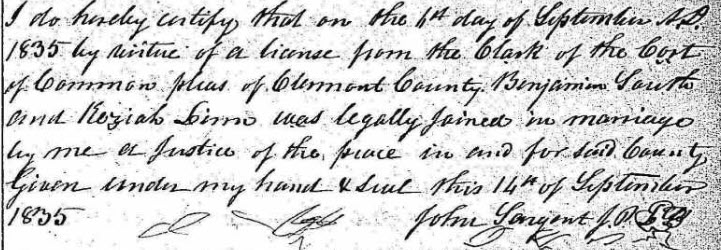 I do hereby certify that on the 4st day of September A.D.
1835 by virtue of a license from the Clark of the Cort
of Common pleas of Clermont County Benjamin South
and Keziah Linn was legally joined in marriage
by me a Justice of the peace in and for said County
Given under my hand & Seal this 14st of September
1835 John Sargent J.P.